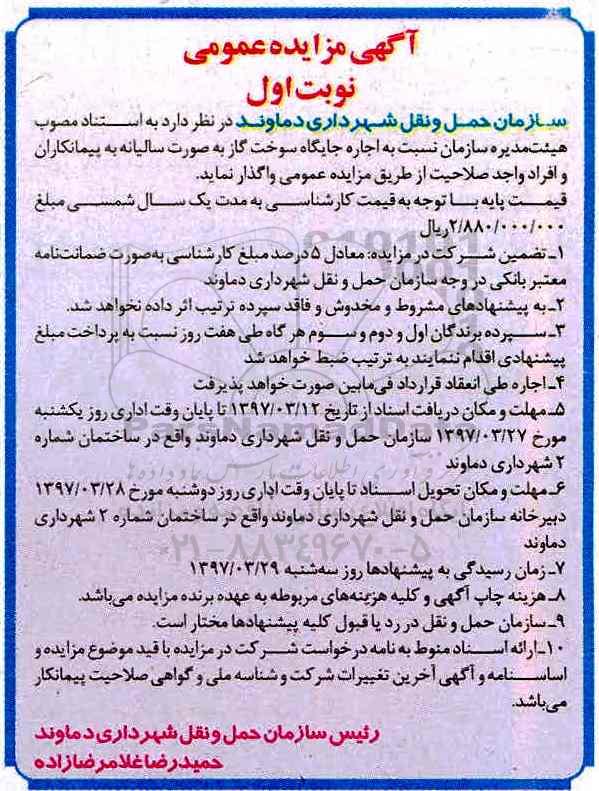 آگهی مزایده عمومی
نوبت اول
سازمان حمل و نقل شهرداری دماوند در نظر دارد به استناد مصوب
هیئت‌مدیره سازمان نسبت به اجاره جایگاه سوخت گاز به صورت سالیانه به پیمانکاران
و افراد واجد صلاحیت از طریق مزایده عمومی واگذار نماید.
قیمت پایه با توجه به قیمت کارشناسی به مدت یک سال شمسی مبلغ
۲/۸۸۰/۰۰۰/۰۰۰ریال
۱ـ تضمین شرکت در مزایده: معادل ۵ درصد مبلغ کارشناسی به‌صورت ضمانت‌نامه
معتبر بانکی در وجه سازمان حمل و نقل شهرداری دماوند
۲ـ به پیشنهادهای مشروط و مخدوش و فاقد سپرده ترتیب اثر داده نخواهد شد.
۳ـ سپرده برندگان اول و دوم و سوم هر گاه طی هفت روز نسبت به پرداخت مبلغ
پیشنهادی اقدام ننمایند به ترتیب ضبط خواهد شد
۴ـ اجاره طی انعقاد قرارداد فی‌مابین صورت خواهد پذیرفت
۵ـ مهلت و مکان دریافت اسناد از تاریخ ۱۳۹۷/۰۳/۱۲ تا پایان وقت اداری روز یکشنبه
مورخ ۱۳۹۷/۰۳/۲۷ سازمان حمل و نقل شهرداری دماوند واقع در ساختمان شماره
۲ شهرداری دماوند
۶ـ مهلت و مکان تحویل اسناد تا پایان وقت اداری روز دوشنبه مورخ ۱۳۹۷/۰۳/۲۸
دبیرخانه سازمان حمل و نقل شهرداری دماوند واقع در ساختمان شماره ۲ شهرداری
دماوند
۷ـ زمان رسیدگی به پیشنهادها روز سه‌شنبه ۱۳۹۷/۰۳/۲۹
۸ـ هزینه چاپ آگهی و کلیه هزینه‌های مربوطه به عهده برنده مزایده می‌باشد.
۹ـ سازمان حمل و نقل در رد یا قبول کلیه پیشنهادها مختار است.
۱۰ـ ارائه اسناد منوط به نامه درخواست شرکت در مزایده با قید موضوع مزایده و
اساسنامه و آگهی آخرین تغییرات شرکت و شناسه ملی و گواهی صلاحیت پیمانکار
می‌باشد.
رئیس سازمان حمل و نقل شهرداری دماوند
حمیدرضا غلامرضازاده
ParsNamadData
۰۲۱-۸۸۳۴۹۶۷۰-۵